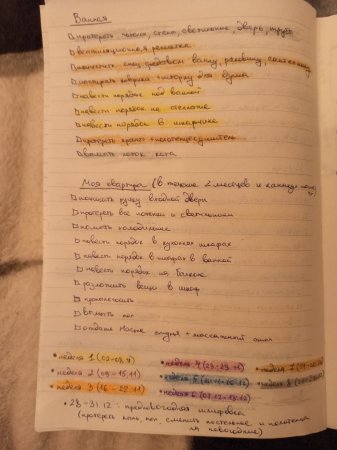 Ванная
протереть потолок, стены, освещение, дверь, трубы
вентиляционная решетка
почистить спец. средством ванну, раковину,
постирать коврик + шторку для душа
навести порядок под ванной
навести порядок на стеллаже
навести порядок в шкафчике
протереть краны + полотенцесушитель
вымыть лоток кота
Моя квартира (в течение 2 месяцев и каждую
почистить ручку входной двери
протереть все потолки и светильники
помыть холодильник
навести порядок в кухонных шкафах
навести порядок в шкафах в ванной
навести порядок на балконе
разложить вещи в шкаф
пропылесосить
вымыть пол
отдать Насте стулья + массажный
неделя 1 (02-08.11) неделя 4 (23-29.11) неделя 7
неделя 2 (09-15.11) неделя 5 неделя 8
неделя 3 (16-22.11) неделя 6 (07.12-13.12)
28-31.12 - предновогодняя шлифовка
(протереть пыль, пол, сменить постельное и полотенца
на новогодние)